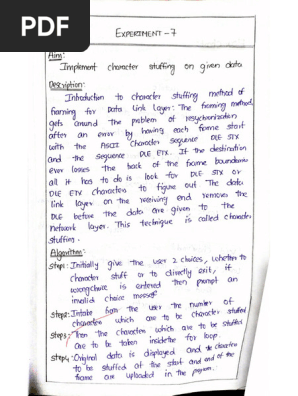 PDF
EXPERIMENT-7
Aim:
Implement character stuffing on given data
Description:
Introduction to character stuffing method of
framing for Data Link Layer: The framing method
gets around the problem of resychronization
after an error by having each frame start
with the ASCII Character sequence DLE STX
and the sequence DLE ETX. If the destination
ever losses the track of the frame boundaries
all it has to do is look for DLE STX or
DLE ETX characters to figure out The data
link layer on the receiving end removes the
DLE before the data are given to the
network layer. This technique is called character
stuffing.
Algorithm:
step1: Initially give the user 2 choices, whether to
character stuff or to directly exit, if
wrong choice is entered then prompt an
invalid choice
step2: Intake from the user the number of
characters which are to be character stuffed
step3: Then the characters which are to be stuffed
are to be taken inside the for loop.
step4: Original data is displayed and the character
to be stuffed at the start and end of the
frame are uploaded in the program.